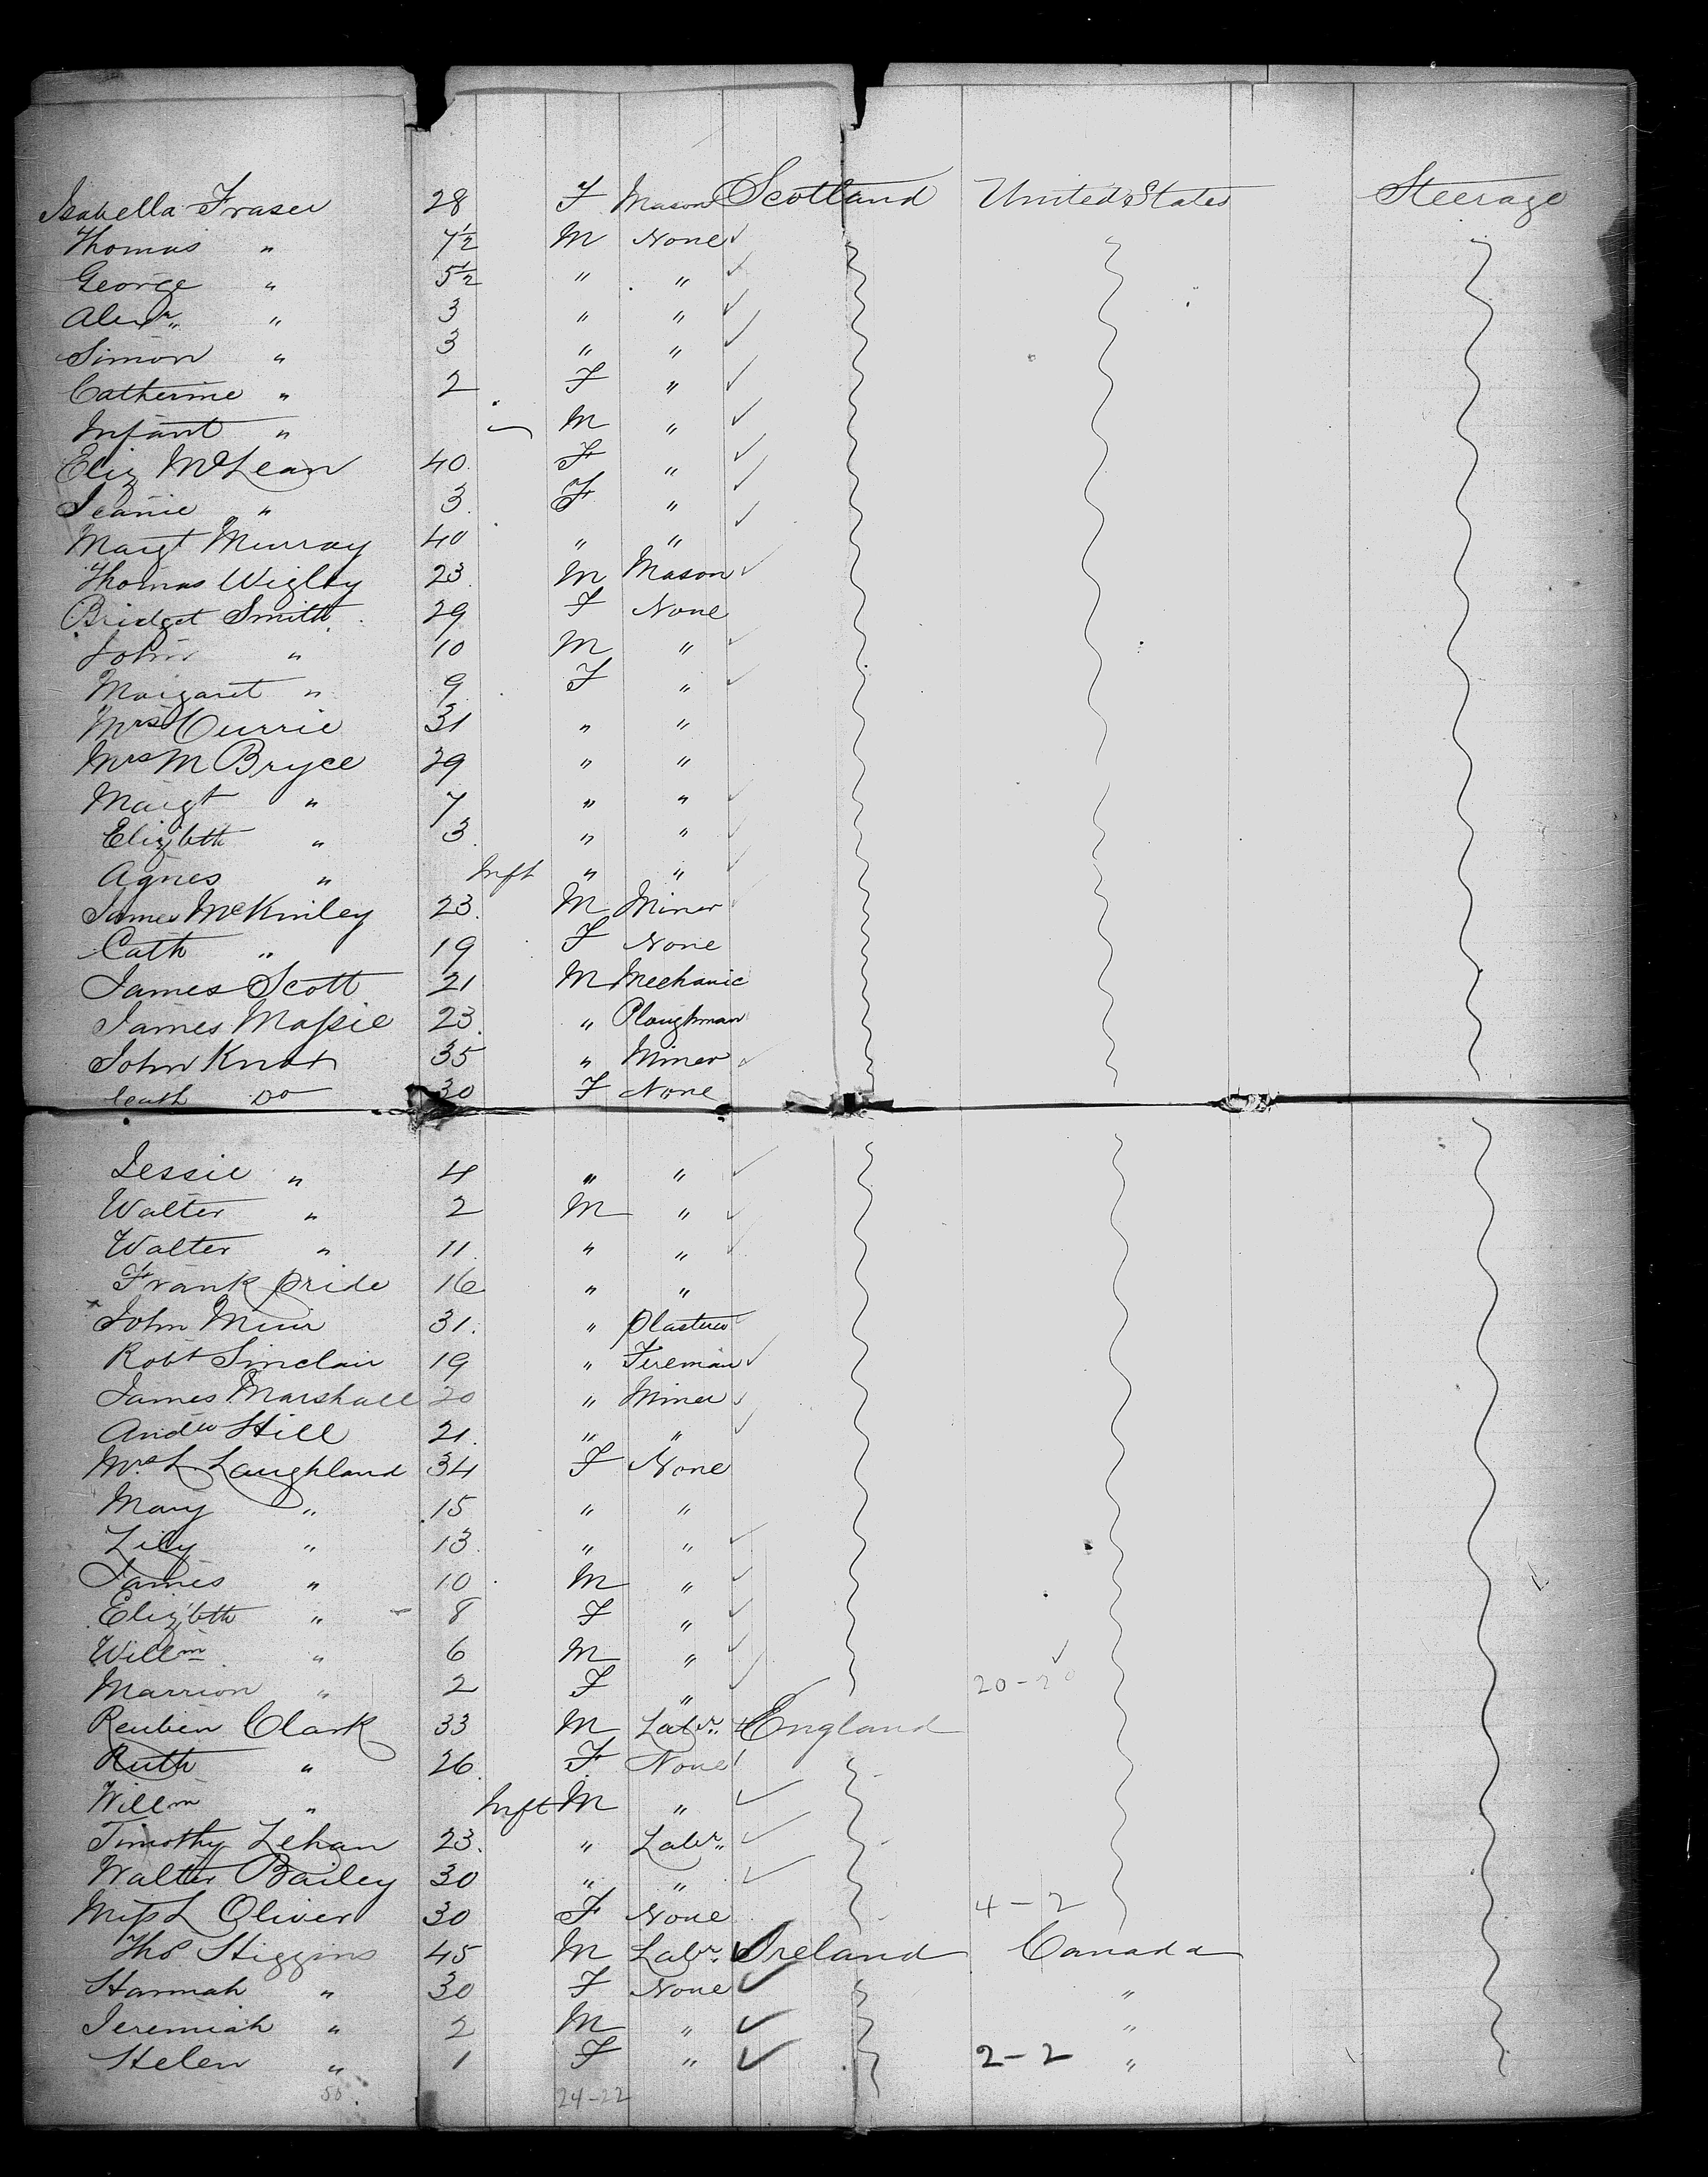 Isabella Fraser 28 F Mason Scotland United States Steerage
Thomas " 7½ M None
George " 5½ " "
Alexr " 3 " "
Simon " 3 " "
Catherine " 2 F "
Infant " M "
Eliz McLean 40 F "
Jeanie " 3 F "
Margt Murray 40 " "
Thomas Wigley 23 M Mason
Bridget Smith 29 F None
John " 10 M "
Margaret " 9 F "
Mrs Currie 31 " "
Mrs M Bryce 29 " "
Margt " 7 " "
Elizbth " 3 " "
Agnes " Inft " "
James McKinley 23 M Miner
Cath " 19 F None
James Scott 21 M Mechanic
James Massie 23 " Ploughman
John Knox 35 " Miner
Cath Do 30 F None
Jessie " 4 " "
Walter " 2 M "
Walter " 11 " "
Frank Pride 16 " "
John Muir 31 " Plasterer
Robt Sinclair 19 " Fireman
James Marshall 20 " Miner
Andw Hill 21 " "
Mrs L Laughland 34 F None
Mary " 15 " "
Lily " 13 " "
James " 10 M "
Elizbth " 8 F "
Willm " 6 M "
Marrion " 2 F " 20-20
Reuben Clark 33 M Labr England
Ruth " 26 F None
Willm " Inft M "
Timothy Lehan 23 " Labr
Walter Bailey 30 " "
Miss L Oliver 30 F None 4-2
Thos Higgins 45 M Labr Ireland Canada
Hannah " 30 F None "
Jeremiah " 2 M " "
Helen " 1 F " 2-2 "
50 24-22